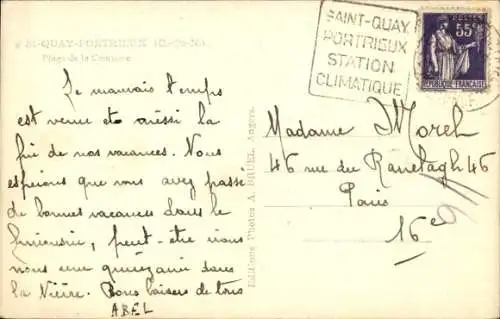 St-QUAY-PORTRIEUX (C.-du-N.)
Plage de la Comtesse
SAINT-QUAY
PORTRIEUX
STATION
CLIMATIQUE
POSTES
55c
REPUBLIQUE FRANÇAISE
Le mauvais temps
est venu et aussi la
fin de nos vacances. Nous
espérons que vous avez passé
de bonnes vacances dans le
peut-être irons
nous une quinzaine dans
la Nièvre. Bons baisers de tous
ABEL
Editions Photos A. BRUEL, Angers.
Madame Morel
46 rue du Ranelagh 46
Paris
16e